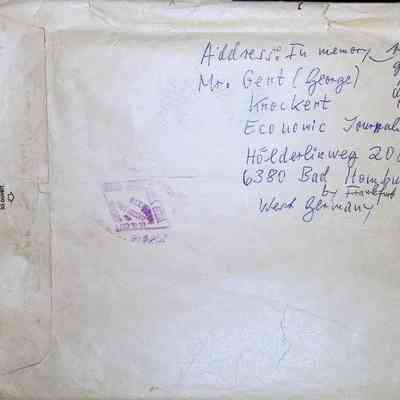 Address: In memory
Mr. Gert (George)
Knockert
Economic Journali
Hölderlinweg 20
6380 Bad Hombu
by Frankfurt
West Germany